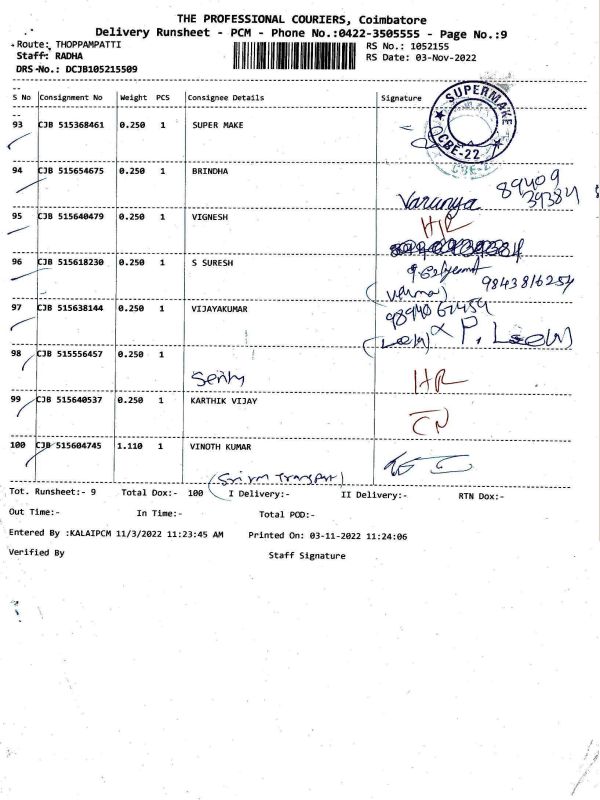 THE PROFESSIONAL COURIERS, Coimbatore
Delivery Runsheet - PCM - Phone No.:0422-3505555 - Page No.:9
Route: THOPPAMPATTI RS No.: 1052155
Staff: RADHA RS Date: 03-Nov-2022
DRS-No.: DCJB105215509
S No Consignment No Weight PCS Consignee Details Signature
93 CJB 515368461 0.250 1 SUPER MAKE
SUPERMAKE
CBE-22
94 CJB 515654675 0.250 1 BRINDHA
Varunya 89409
39384
95 CJB 515640479 0.250 1 VIGNESH HR
96 CJB 515618230 0.250 1 S SURESH
9843816254
97 CJB 515638144 0.250 1 VIJAYAKUMAR
98 CJB 515556457 0.250 1
HR
99 CJB 515640537 0.250 1 KARTHIK VIJAY
100 CJB 515604745 1.110 1 VINOTH KUMAR
Tot. Runsheet:- 9 Total Dox:- 100 I Delivery:- II Delivery:- RTN Dox:-
Out Time:- In Time:- Total POD:-
Entered By :KALAIPCM 11/3/2022 11:23:45 AM Printed On: 03-11-2022 11:24:06
Verified By Staff Signature